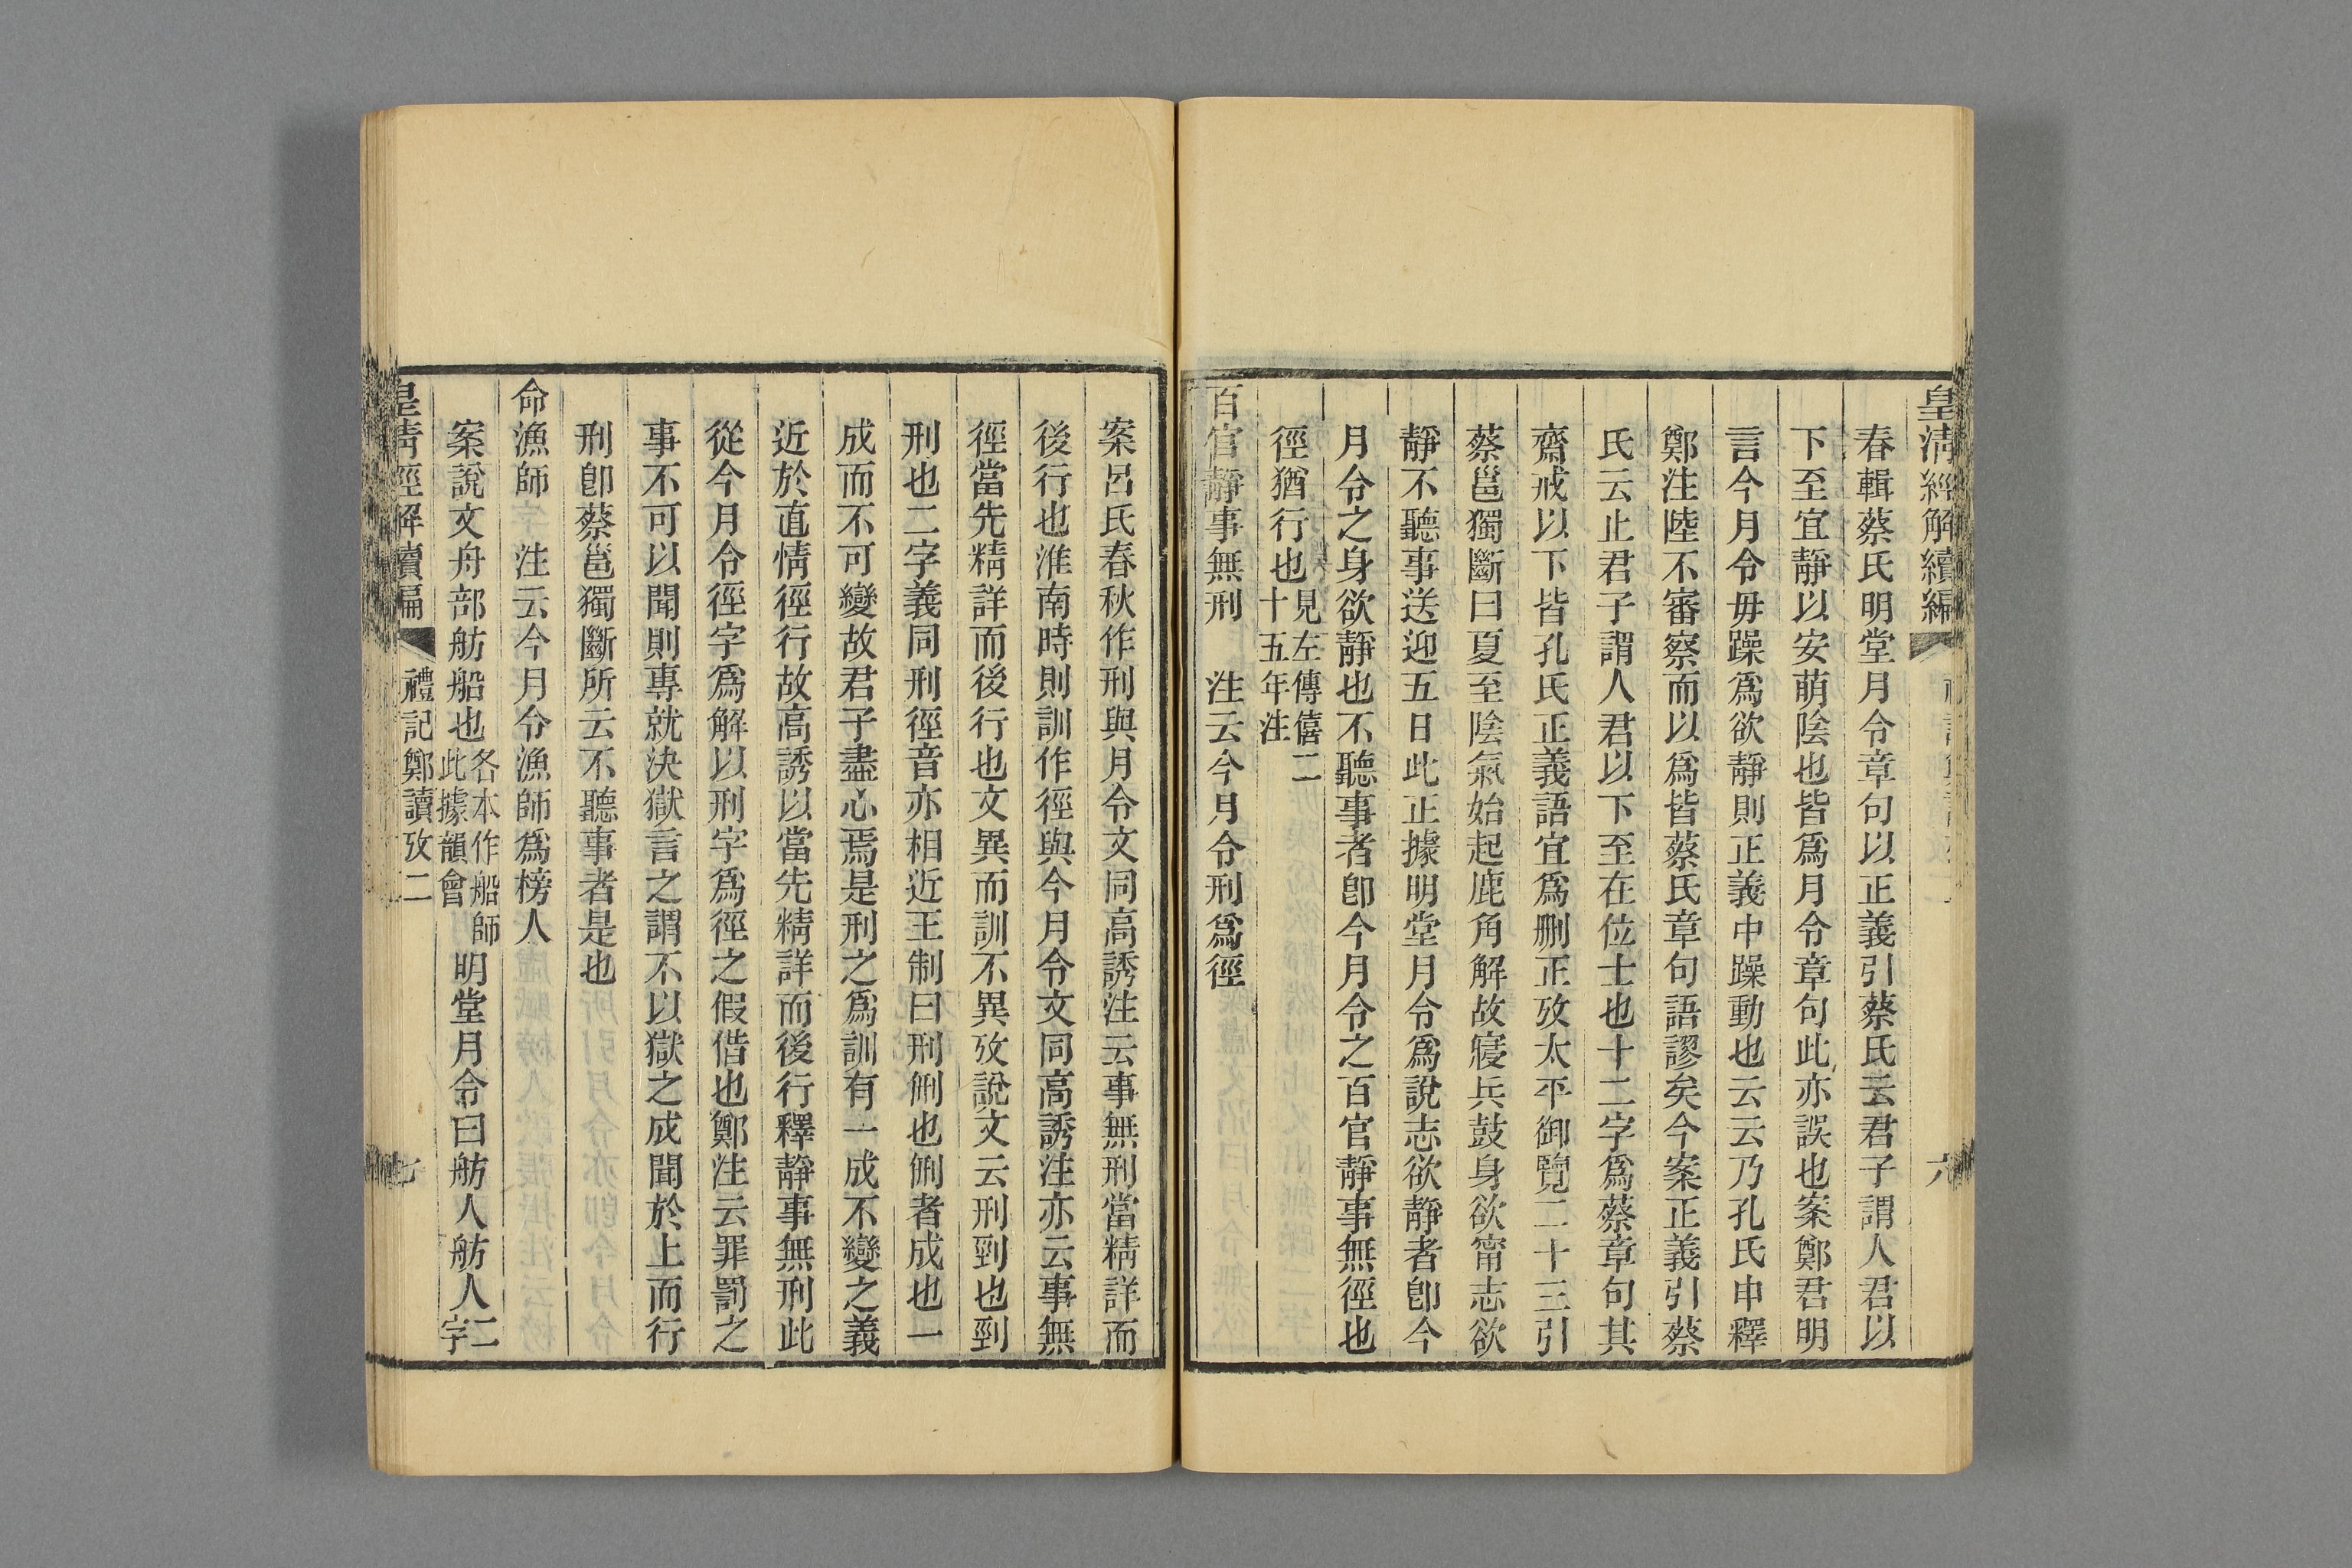 皇清經解續編 六
春輯蔡氏明堂月令章句以正義引蔡氏云君子謂人君以
下至宜靜以安萌陰也皆爲月令章句此亦誤也案鄭君明
言今月令毋躁爲欲靜則正義中躁動也云云乃孔氏申釋
鄭注陸不審察而以爲皆蔡氏章句語謬矣今案正義引蔡
氏云止君子謂人君以下至在位士也十二字爲蔡章句其
齋戒以下皆孔氏正義語宜爲删正攷太平御覽二十三引
蔡邕獨斷曰夏至陰氣始起鹿角解故寢兵鼓身欲甯志欲
靜不聽事送迎五日此正據明堂月令爲說志欲靜者卽今
月令之身欲靜也不聽事者卽今月令之百官靜事無徑也
徑猶行也見左傳僖二十五年注
百官靜事無刑 注云今月令刑爲徑
案呂氏春秋作刑與月令文同高誘注云事無刑當精詳而
後行也淮南時則訓作徑與今月令文同高誘注亦云事無
徑當先精詳而後行也文異而訓不異攷說文云刑剄也剄
刑也二字義同刑徑音亦相近王制曰刑侀也侀者成也一
成而不可變故君子盡心焉是刑之爲訓有一成不變之義
近於直情徑行故高誘以當先精詳而後行釋靜事無刑此
從今月令徑字爲解以刑字爲徑之假借也鄭注云罪罰之
事不可以聞則專就決獄言之謂不以獄之成聞於上而行
刑卽蔡邕獨斷所云不聽事者是也
命漁師 注云今月令漁師爲榜人
案說文舟部舫船也各本作船師此據韻會明堂月令曰舫人舫人二字
皇清經解續編 禮記鄭讀攷二 七